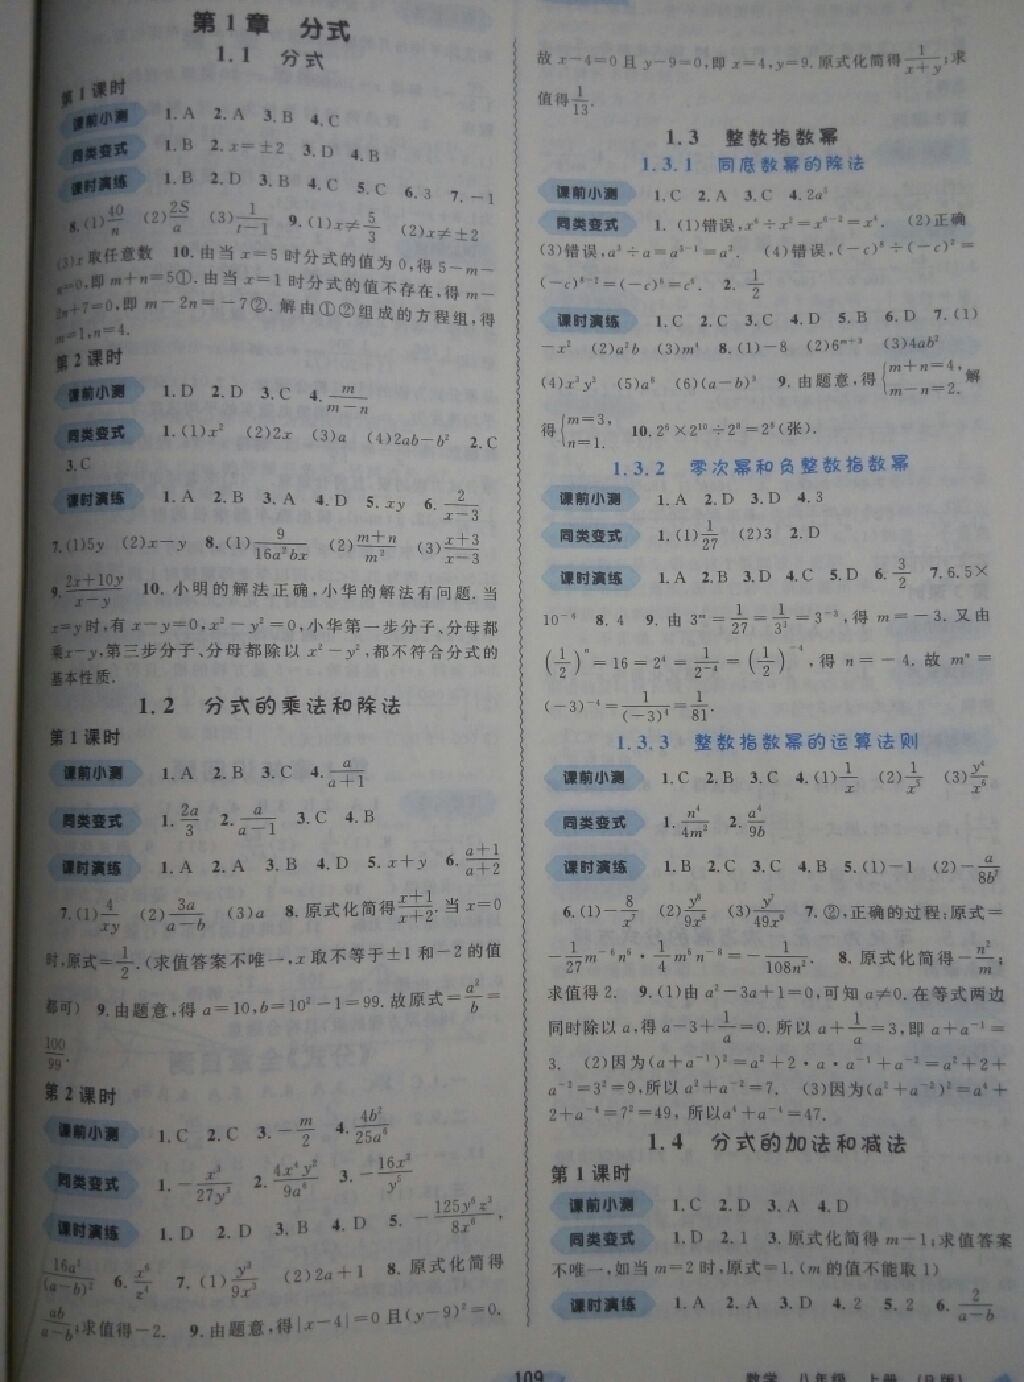 第1章 分式
1.1 分式
第1课时
课前小测 1.A 2.A 3.B 4.C
同类变式 1.B 2.x=±2 3.D 4.B
课时演练 1.B 2.D 3.B 4.C 5.C 6.3 7.-1
8.(1)40/n (2)2S/a (3)1/(t-1) 9.(1)x≠5/3 (2)x≠±2
(3)x取任意数 10.由当x=5时分式的值为0,得5-m-
n=0,即m+n=5①.由当x=1时分式的值不存在,得m-
2n+7=0,即m-2n=-7②.解由①②组成的方程组,得
m=1,n=4.
第2课时
课前小测 1.D 2.D 3.C 4.m/(m-n)
同类变式 1.(1)x² (2)2x (3)a (4)2ab-b² 2.C
3.C
课时演练 1.A 2.B 3.A 4.D 5.xy 6.2/(x-3)
7.(1)5y (2)x-y 8.(1)9/(16a²bx) (2)(m+n)/m² (3)(x+3)/(x-3)
9.(2x+10y)/(x-y) 10.小明的解法正确,小华的解法有问题.当
x=y时,有x-y=0,x²-y²=0,小华第一步分子、分母都
乘x-y,第三步分子、分母都除以x²-y²,都不符合分式的
基本性质.
1.2 分式的乘法和除法
第1课时
课前小测 1.A 2.B 3.C 4.a/(a+1)
同类变式 1.2a/3 2.a/(a-1) 3.C 4.B
课时演练 1.A 2.A 3.B 4.D 5.x+y 6.(a+1)/(a+2)
7.(1)4/xy (2)3a/(a-b) (3)a 8.原式化简得(x+1)/(x+2).当x=0
时,原式=1/2.(求值答案不唯一,x取不等于±1和-2的值
都可) 9.由题意,得a=10,b=10²-1=99.故原式=a²/b=
100/99.
第2课时
课前小测 1.C 2.C 3.-m/2 4.4b²/25a⁶
同类变式 1.-x³/27y³ 2.4x⁴y²/9a⁶ 3.-16x³/y⁵
课时演练 1.D 2.D 3.B 4.D 5.-125y⁶z³/8x⁶,
16a⁴/(a-b)² 6.x⁶/z⁴ 7.(1)y³/9x³ (2)2a+1 8.原式化简得
ab/(a-b);求值得-2. 9.由题意,得|x-4|=0且(y-9)²=0.
故x-4=0且y-9=0,即x=4,y=9.原式化简得1/(x+y);求
值得1/13.
1.3 整数指数幂
1.3.1 同底数幂的除法
课前小测 1.C 2.A 3.C 4.2a³
同类变式 1.(1)错误,x⁶÷x²=x⁶⁻²=x⁴. (2)正确
(3)错误,a³÷a=a³⁻¹=a². (4)错误,(-c)⁸÷(-c)²=
(-c)⁸⁻²=(-c)⁶=c⁶. 2.1/2
课时演练 1.C 2.C 3.C 4.D 5.B 6.D 7.(1)
-x² (2)a²b (3)m⁴ 8.(1)-8 (2)6ᵐ⁺³ (3)4ab²
(4)x³y³ (5)a⁶ (6)(a-b)³ 9.由题意,得{m+n=4, m-n=2. 解
得{m=3, n=1. 10.2⁶×2¹⁰÷2⁸=2⁸(张).
1.3.2 零次幂和负整数指数幂
课前小测 1.A 2.D 3.D 4.3
同类变式 1.(1)1/27 (2)3 2.D
课时演练 1.A 2.B 3.D 4.C 5.D 6.3/2 7.6.5×
10⁻⁴ 8.4 9.由3ᵐ=1/27=1/3³=3⁻³,得m=-3.又由
(1/2)ⁿ=16=2⁴=1/2⁻⁴=(1/2)⁻⁴,得n=-4.故mⁿ=
(-3)⁻⁴=1/(-3)⁴=1/81.
1.3.3 整数指数幂的运算法则
课前小测 1.C 2.B 3.C 4.(1)1/x (2)1/x⁵ (3)y⁴/x⁶
同类变式 1.n⁴/4m² 2.a⁴/9b
课时演练 1.B 2.C 3.C 4.B 5.(1)-1 (2)-a/8b⁷
6.(1)-8/x⁷ (2)y⁸/9x⁶ (3)y⁷/49x⁹ 7.②,正确的过程:原式=
-1/27m⁻⁶n⁶·1/4m⁶n⁻⁸=-1/108n². 8.原式化简得-n²/m;
求值得2. 9.(1)由a²-3a+1=0,可知a≠0.在等式两边
同时除以a,得a-3+1/a=0.所以a+1/a=3,即a+a⁻¹=
3. (2)因为(a+a⁻¹)²=a²+2·a·a⁻¹+a⁻²=a²+2+
a⁻²=3²=9,所以a²+a⁻²=7. (3)因为(a²+a⁻²)²=a⁴+
2+a⁻⁴=7²=49,所以a⁴+a⁻⁴=47.
1.4 分式的加法和减法
第1课时
课前小测 1.C 2.D 3.A 4.D
同类变式 1.D 2.1 3.原式化简得m-1;求值答案
不唯一,如当m=2时,原式=1.(m的值不能取1)
课时演练 1.A 2.A 3.D 4.2 5.2 6.2/(a-b)
109 数学 八年级 上册